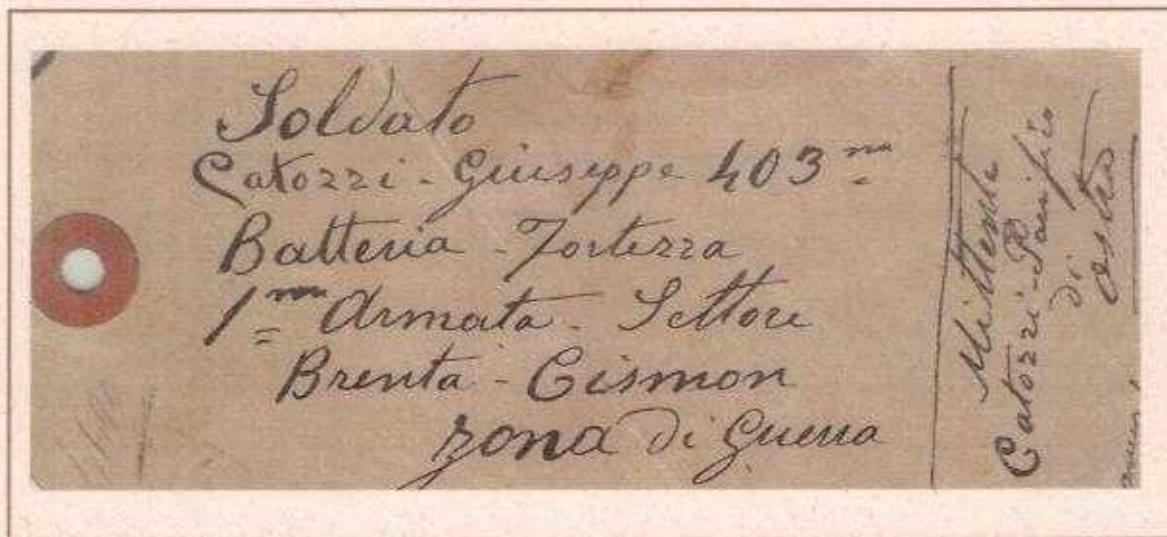 Soldato
Catozzi - Giuseppe 403ma
Batteria - Fortezza
1ma Armata - Settore
Brenta - Cismon
zona di Guerra
Mittente
Catozzi - Pacifico
di